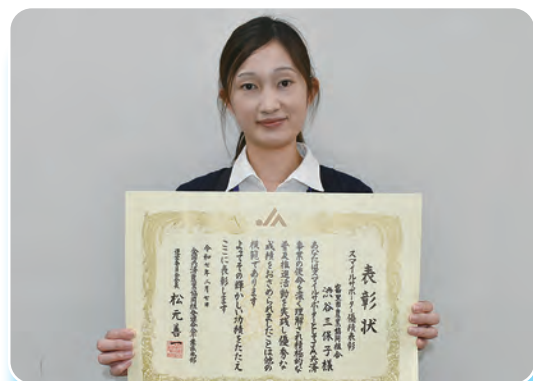 JA
表彰状
スマイルサポーター優績表彰
富里市農業協同組合
渋谷三保子様
あなたはスマイルサポーターとしてよく共済
事業の使命を深く理解され積極的な
普及推進活動を実践し優秀な
成績をおさめられましたことは他の
模範であります
よってその輝かしい功績をたたえ
ここに表彰します
令和七年 月七日
全国共済農業協同組合連合会千葉県本部
運営委員会会長 松元善一